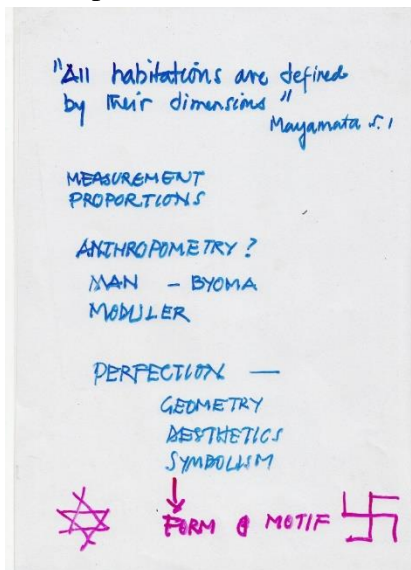 "All habitations are defined
by their dimensions"
Mayamata 5.1
MEASUREMENT
PROPORTIONS
ANTHROPOMETRY?
MAN – BYOMA
MODULER
PERFECTION —
GEOMETRY
AESTHETICS
SYMBOLISM
FORM & MOTIF